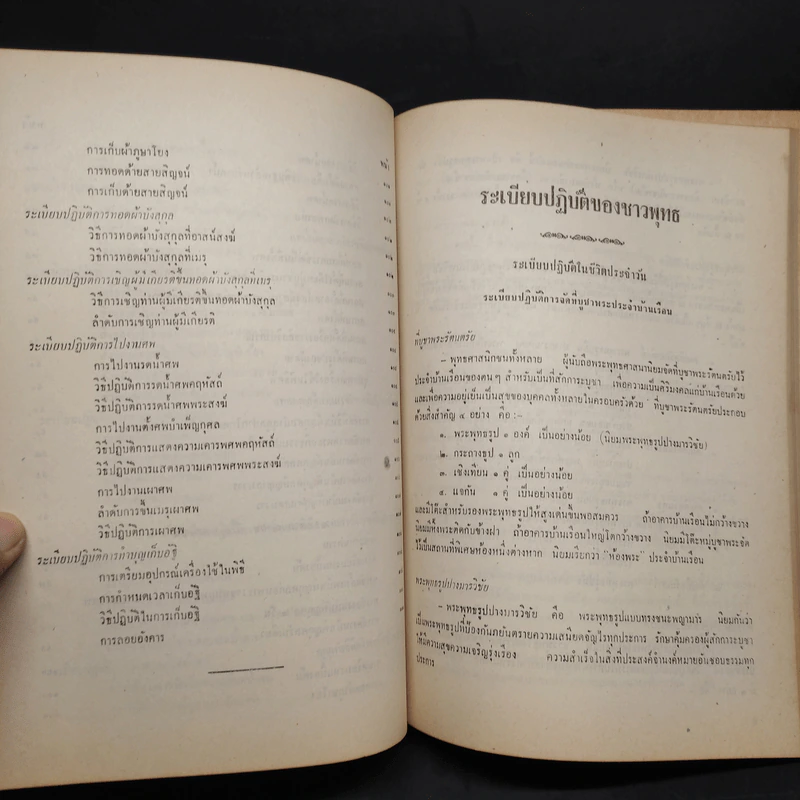 หน้า
การเก็บผ้าภูษาโยง
การทอดด้ายสายสิญจน์
การเก็บด้ายสายสิญจน์
ระเบียบปฏิบัติการทอดผ้าบังสุกุล
วิธีการทอดผ้าบังสุกุลที่อาสน์สงฆ์
วิธีการทอดผ้าบังสุกุลที่เมรุ
ระเบียบปฏิบัติการเชิญผู้มีเกียรติขึ้นทอดผ้าบังสุกุลที่เมรุ
วิธีการเชิญท่านผู้มีเกียรติขึ้นทอดผ้าบังสุกุล
ลำดับการเชิญท่านผู้มีเกียรติ
ระเบียบปฏิบัติการไปงานศพ
การไปงานรดน้ำศพ
วิธีปฏิบัติการรดน้ำศพคฤหัสถ์
วิธีปฏิบัติการรดน้ำศพพระสงฆ์
การไปงานตั้งศพบำเพ็ญกุศล
วิธีปฏิบัติการแสดงความเคารพศพคฤหัสถ์
วิธีปฏิบัติการแสดงความเคารพศพพระสงฆ์
การไปงานเผาศพ
ลำดับการขึ้นเมรุเผาศพ
วิธีปฏิบัติการเผาศพ
ระเบียบปฏิบัติการทำบุญเก็บอัฐิ
การเตรียมอุปกรณ์เครื่องใช้ในพิธี
การกำหนดเวลาเก็บอัฐิ
วิธีปฏิบัติในการเก็บอัฐิ
การลอยอังคาร
ระเบียบปฏิบัติของชาวพุทธ
ระเบียบปฏิบัติในชีวิตประจำวัน
ระเบียบปฏิบัติการจัดที่บูชาพระประจำบ้านเรือน
ที่บูชาพระรัตนตรัย
– พุทธศาสนิกชนทั้งหลาย ผู้นับถือพระพุทธศาสนานิยมจัดที่บูชาพระรัตนตรัยไว้
ประจำบ้านเรือนของตน ๆ สำหรับเป็นที่สักการะบูชา เพื่อความเป็นศิริมงคลแก่บ้านเรือนด้วย
และเพื่อความอยู่เย็นเป็นสุขของบุคคลทั้งหลายในครอบครัวด้วย ที่บูชาพระรัตนตรัยประกอบ
ด้วยสิ่งสำคัญ ๔ อย่าง คือ :–
๑. พระพุทธรูป ๑ องค์ เป็นอย่างน้อย (นิยมพระพุทธรูปปางมารวิชัย)
๒. กระถางธูป ๑ ลูก
๓. เชิงเทียน ๑ คู่ เป็นอย่างน้อย
๔. แจกัน ๑ คู่ เป็นอย่างน้อย
และมีโต๊ะสำหรับรองพระพุทธรูปให้สูงเด่นขึ้นพอสมควร ถ้าอาคารบ้านเรือนไม่กว้างขวาง
นิยมมีหิ้งพระติดกับข้างฝา ถ้าอาคารบ้านเรือนใหญ่โตกว้างขวาง นิยมมีโต๊ะหมู่บูชาพระจัด
ไว้เป็นสถานที่พิเศษห้องหนึ่งต่างหาก นิยมเรียกว่า “ห้องพระ” ประจำบ้านเรือน
พระพุทธรูปปางมารวิชัย
– พระพุทธรูปปางมารวิชัย คือ พระพุทธรูปแบบทรงชนะพญามาร นิยมกันว่า
เป็นพระพุทธรูปที่ป้องกันภยันตรายความเสนียดจัญไรทุกประการ รักษาคุ้มครองผู้สักการะบูชา
ให้มีความสุขความเจริญรุ่งเรือง ความสำเร็จในสิ่งที่ประสงค์จำนงค์หมายอันชอบธรรมทุก
ประการ